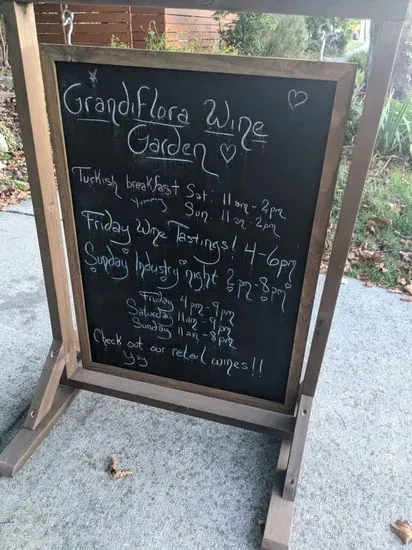 Grandiflora Wine
Garden
Turkish breakfast Sat: 11am-2pm
Yummy Sun: 11am-2pm
Friday Wine Tastings! 4-6pm
Sunday Industry night 2pm-8pm
Friday 4pm-9pm
Saturday 11am-9pm
Sunday 11am-8pm
Check out our retail wines!!
Yay